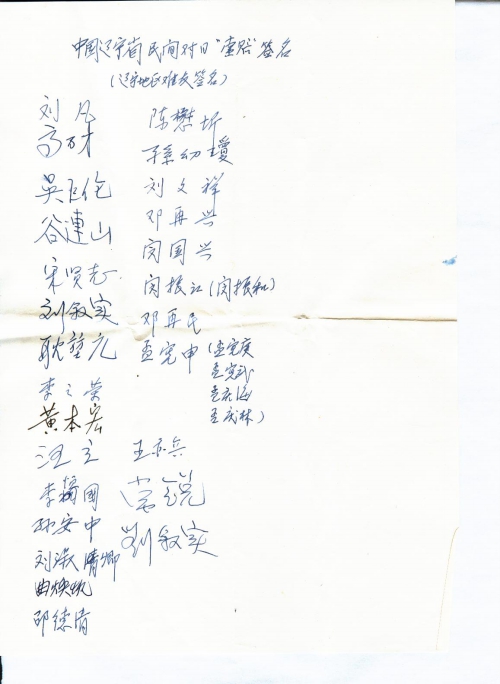 中国辽宁省民间对日"索赔"签名
(辽宁地区难友签名)
刘凡
高才
吴巨伦
谷連山
宋贤志
刘叙实
耿堃元
李之荣
黄本宏
汪立
李梅国
孙安中
刘洪
邵德清
陈懋圻
孫幼瓊
刘文祥
邓再兴
闵国兴
闵振江(闵振和)
邓再民
孟宪申(孟宪庚
孟宪武
孟庆海
孟庆林)
王亦兵
常锐
刘叙实